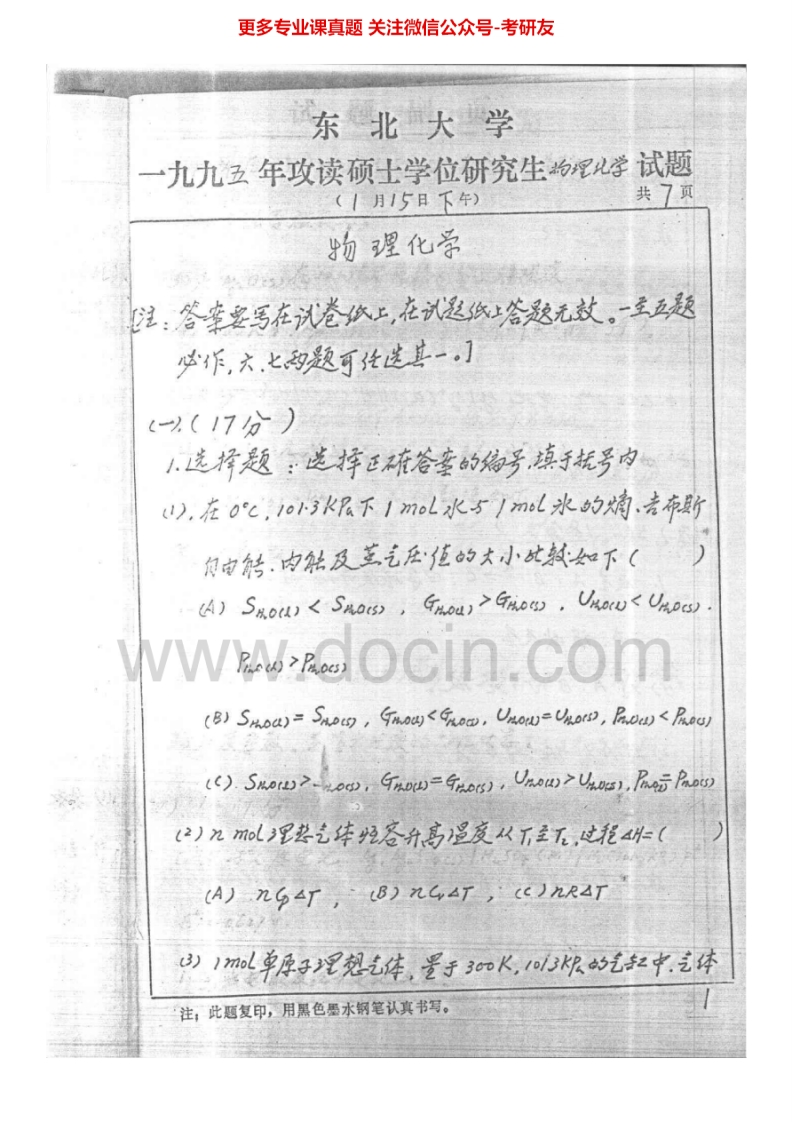 更多专业课真题 关注微信公众号-考研友
东北大学
一九九五年攻读硕士学位研究生物理化学试题
(1月15日下午)
共7页
物理化学
[注:答案要写在试卷纸上,在试题纸上答题无效。一至五题
必作,六、七两题可任选其一。]
(一).(17分)
1.选择题:选择正确答案的编号,填于括号内
(1).在0°C,101.3KPa下1mol水与1mol冰的熵、吉布斯
自由能、内能及蒸气压值的大小比较如下( )
(A) S_{H2O(l)} < S_{H2O(s)}, G_{H2O(l)} > G_{H2O(s)}, U_{H2O(l)} < U_{H2O(s)}.
P_{H2O(l)} > P_{H2O(s)}
www.docin.com
(B) S_{H2O(l)} = S_{H2O(s)}, G_{H2O(l)} < G_{H2O(s)}, U_{H2O(l)} = U_{H2O(s)}, P_{H2O(l)} < P_{H2O(s)}
(C). S_{H2O(l)} > _{H2O(s)}, G_{H2O(l)} = G_{H2O(s)}, U_{H2O(l)} > U_{H2O(s)}, P_{H2O(l)} = P_{H2O(s)}
(2) n mol理想气体恒容升高温度从T₁至T₂,过程ΔH=( )
(A) nCpΔT, (B) nCvΔT, (C) nRΔT
(3) 1mol单原子理想气体,置于300K,1013KPa的气缸中.气体
1
注:此题复印,用黑色墨水钢笔认真书写。